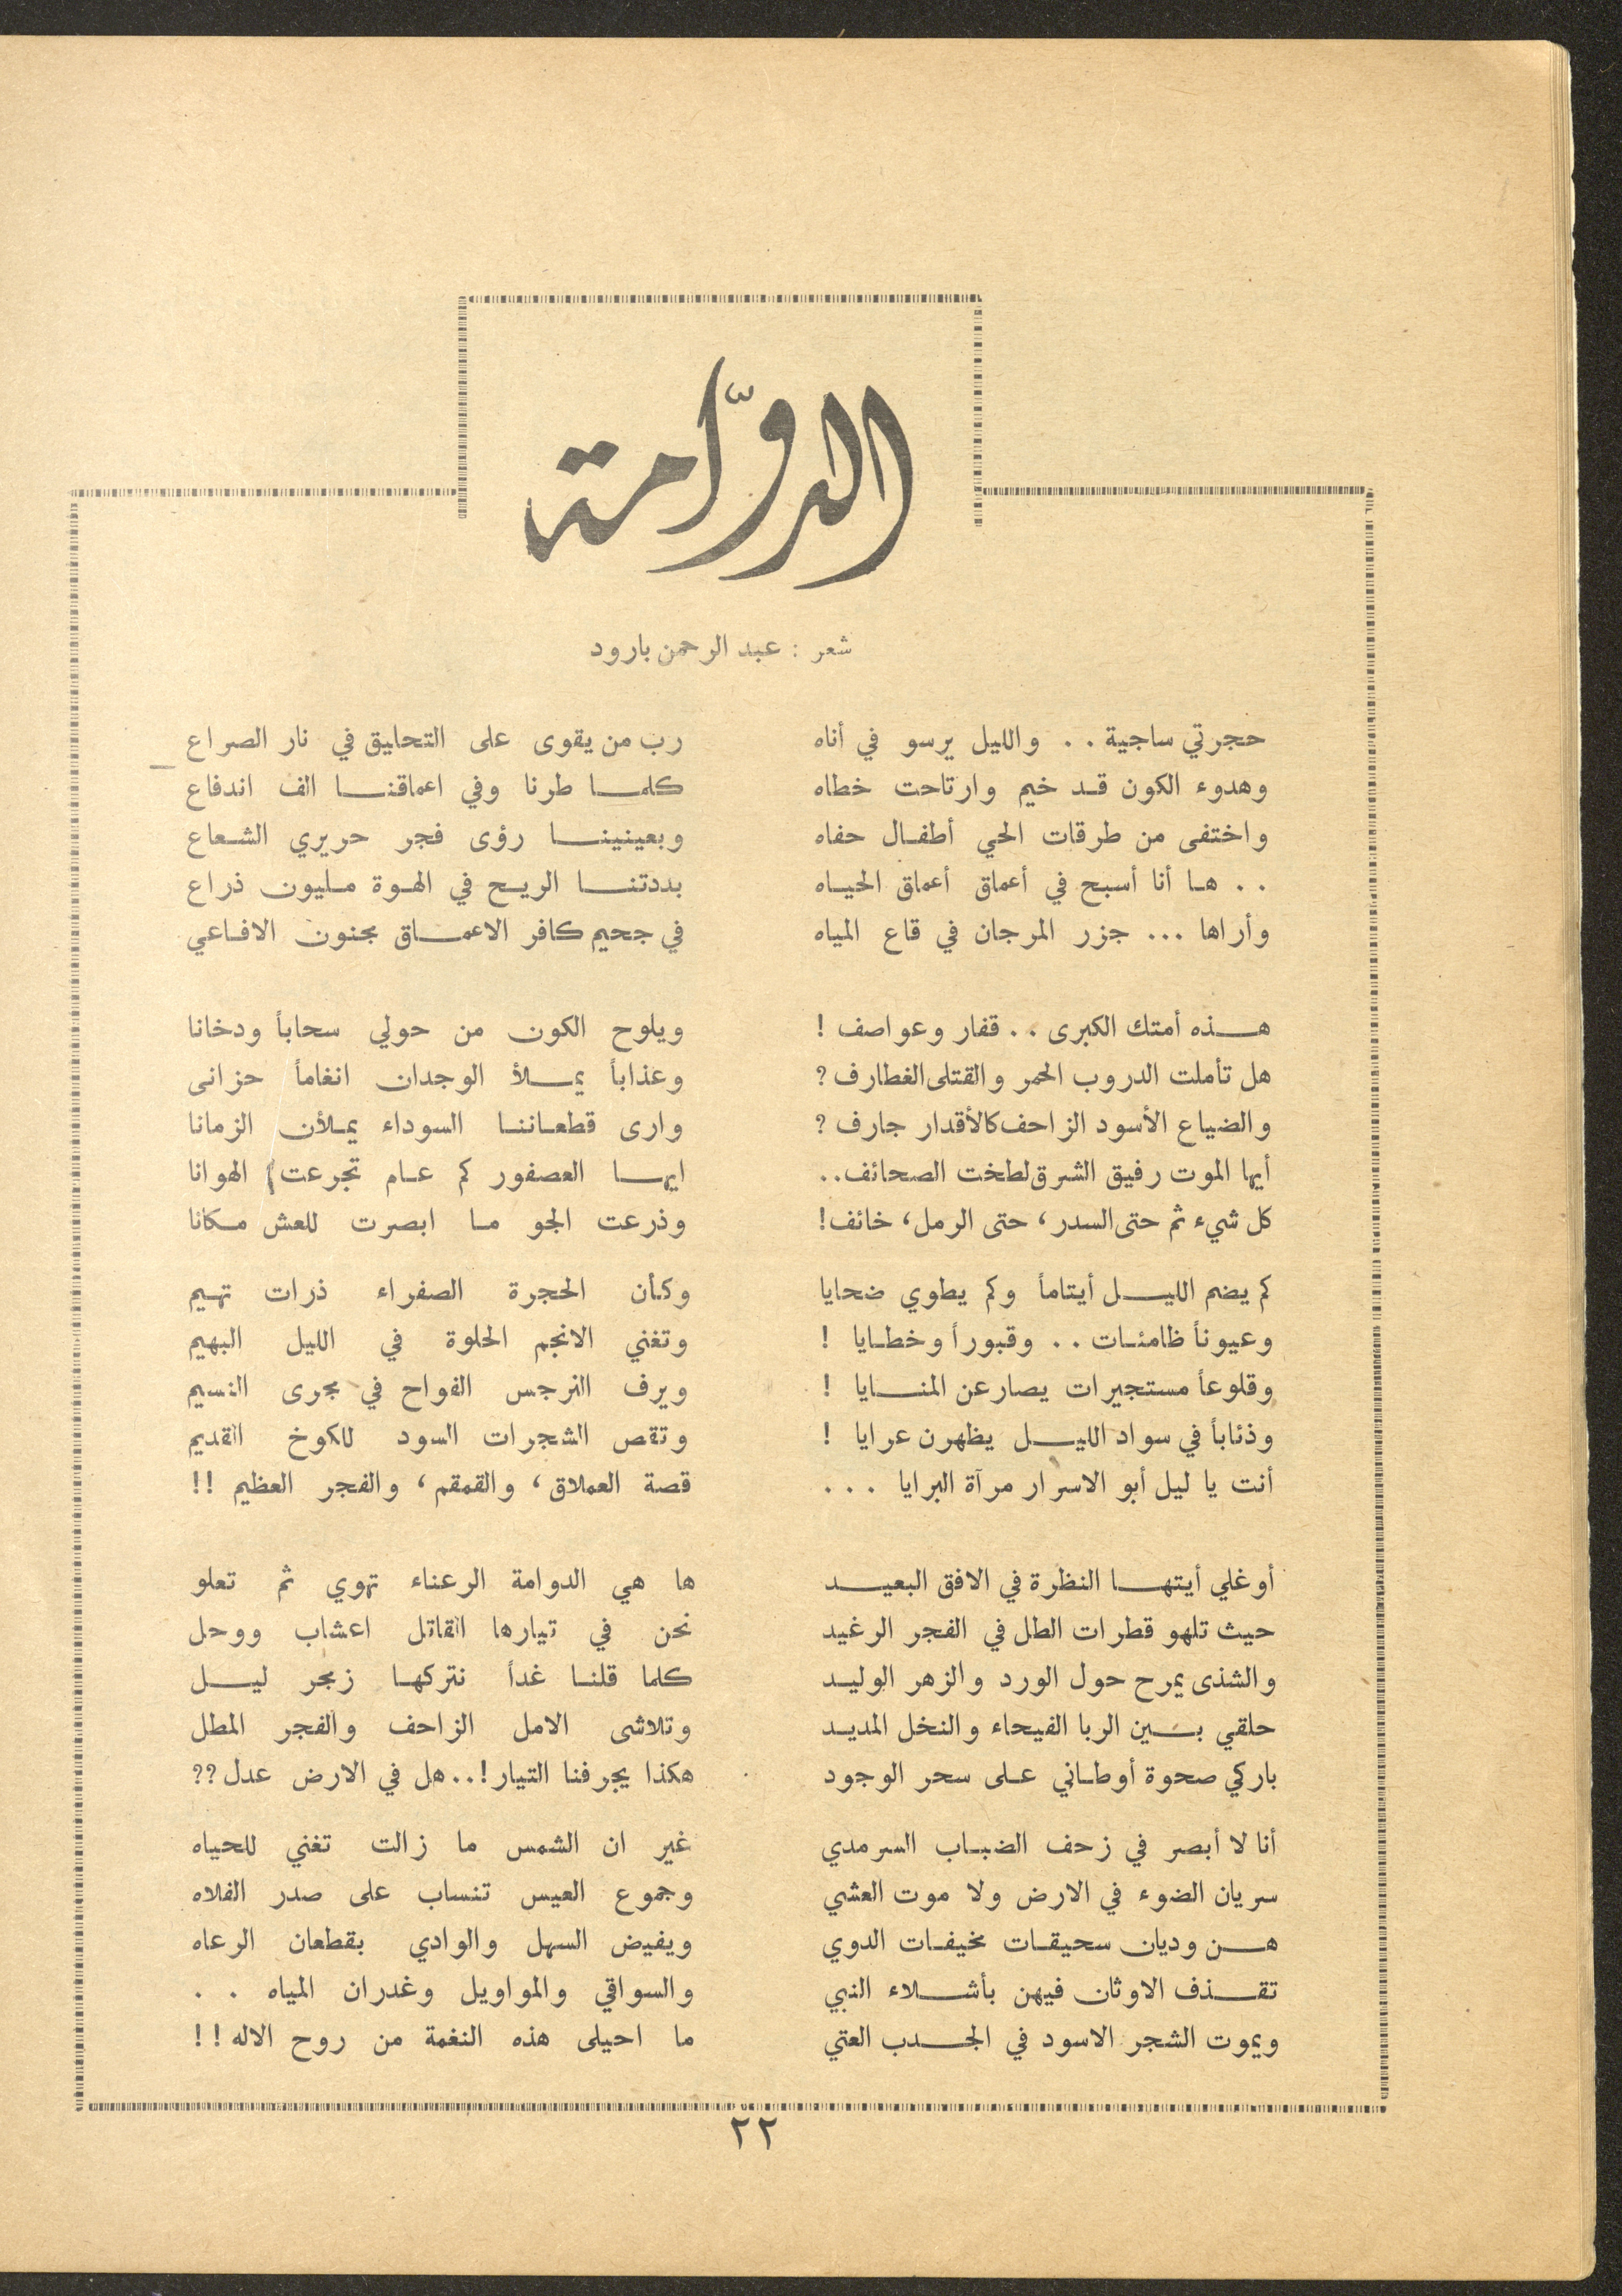 الدوّامة
شعر : عبد الرحمن بارود
حجرتي ساجية . . والليل يرسو في أناه
وهدوء الكون قد خيم وارتاحت خطاه
واختفى من طرقات الحي أطفال حفاه
. . ها أنا أسبح في أعماق أعماق الحياه
وأراها ... جزر المرجان في قاع المياه
هذه أمتك الكبرى . . قفار وعواصف !
هل تأملت الدروب الحمر والقتلى الغطارف ؟
والضياع الأسود الزاحف كالأقدار جارف ؟
أيها الموت رفيق الشرق لطخت الصحائف . .
كل شيء ثم حتى السدر ، حتى الرمل ، خائف !
كم يضم الليل أيتاماً وكم يطوي ضحايا
وعيوناً ظامئات . . وقبوراً وخطايا !
وقلوعاً مستجيرات يصارعن المنايا !
وذئاباً في سواد الليل يظهرن عرايا !
أنت يا ليل أبو الاسرار مرآة البرايا . . .
أوغلي أيتها النظرة في الافق البعيد
حيث تلهو قطرات الطل في الفجر الرغيد
والشذى يمرح حول الورد والزهر الوليد
حلقي بين الربا الفيحاء والنخل المديد
باركي صحوة أوطاني على سحر الوجود
أنا لا أبصر في زحف الضباب السرمدي
سريان الضوء في الارض ولا موت العشي
هن وديان سحيقات مخيفات الدوي
تقذف الاوثان فيهن بأشلاء النبي
ويموت الشجر الاسود في الجدب العتي
رب من يقوى على التحليق في نار الصراع
كلما طرنا وفي اعماقنا الف اندفاع
وبعينينا رؤى فجر حريري الشعاع
بددتنا الريح في الهوة مليون ذراع
في جحيم كافر الاعماق مجنون الافاعي
ويلوح الكون من حولي سحاباً ودخانا
وعذاباً يملأ الوجدان انغاماً حزانى
وارى قطعاننا السوداء يملأن الزمانا
ايها العصفور كم عام تجرعت الهوانا
وذرعت الجو ما ابصرت للعش مكانا
وكأن الحجرة الصفراء ذرات تهيم
وتغني الانجم الحلوة في الليل البهيم
ويرف النرجس الفواح في مجرى النسيم
وتقص الشجرات السود للكوخ القديم
قصة العملاق ، والقمقم ، والفجر العظيم !!
ها هي الدوامة الرعناء تهوي ثم تعلو
نحن في تيارها القاتل اعشاب ووحل
كلما قلنا غداً نتركها زمجر ليل
وتلاشى الامل الزاحف والفجر المطل
هكذا يجرفنا التيار ! . . هل في الارض عدل ؟؟
غير ان الشمس ما زالت تغني للحياه
وجموع العيس تنساب على صدر الفلاه
ويفيض السهل والوادي بقطعان الرعاه
والسواقي والمواويل وغدران المياه . .
ما احيلى هذه النغمة من روح الاله ! !
٢٢